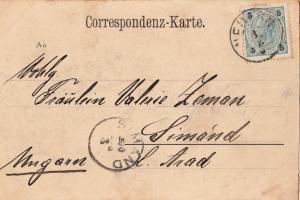 Correspondenz-Karte.
An
Wohlg
Fräulein Valerie Zeman
Simánd
Ungarn C. Arad
5 5
5 5